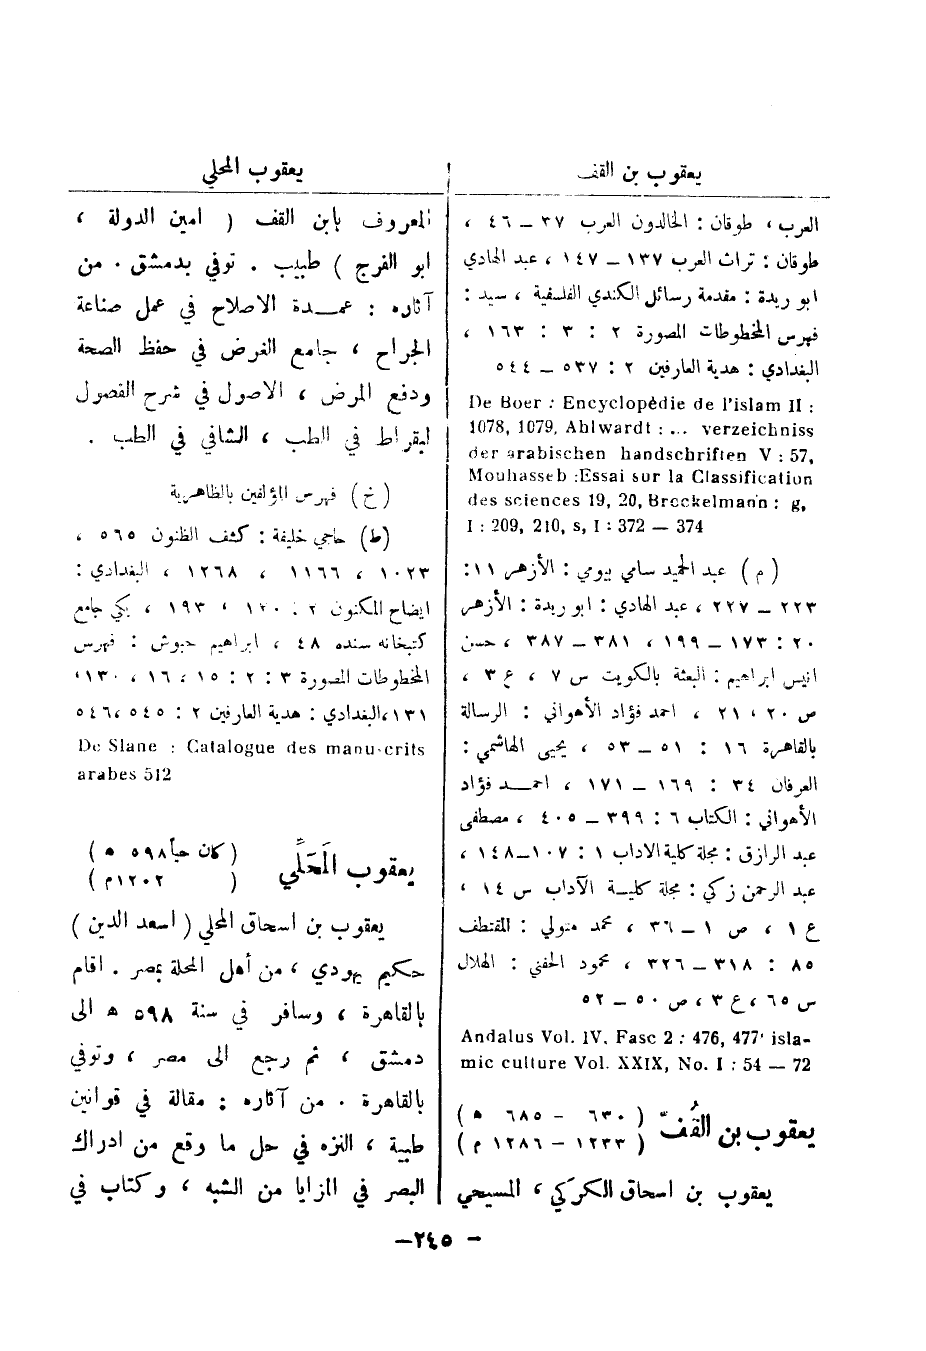 يعقوب بن القف
العرب، طوقان : الخالدون العرب ٣٧ ــ ٤٦ ،
طوقان : تراث العرب ١٣٧ ــ ١٤٧ ، عبد الهادي
ابو ريدة : مقدمة رسائل الكندي الفلسفية ، سيد :
فهرس المخطوطات المصورة ٢ : ٣ : ١٦٣ ،
البغدادي : هدية العارفين ٢ : ٥٣٧ ــ ٥٤٤
De Boer : Encyclopédie de l'islam II :
1078, 1079, Ahlwardt : ... verzeichniss
der arabischen handschriften V : 57,
Mouhasseb :Essai sur la Classification
des sciences 19, 20, Brockelmann : g,
I : 209, 210, s, I : 372 — 374
( م ) عبد الحميد سامي بيومي : الأزهر ١١ :
٢٢٣ ــ ٢٢٧ ، عبد الهادي : ابو ريدة : الأزهر
٢٠ : ١٧٣ ــ ١٩٩ ، ٣٨١ ــ ٣٨٧ ، حسن
انيس ابراهيم : البعثة بالكويت س ٧ ، ع ٣ ،
ص ٢٠ ، ٢١ ، احمد فؤاد الأهواني : الرسالة
بالقاهرة ١٦ : ٥١ ــ ٥٣ ، يحيى الهاشمي :
العرفان ٣٤ : ١٦٩ ــ ١٧١ ، احمـــد فؤاد
الأهواني : الكتاب ٦ : ٣٩٩ ــ ٤٠٥ ، مصطفى
عبد الرازق : مجلة كلية الاداب ١ : ١٠٧ــ١٤٨ ،
عبد الرحمن زكي : مجلة كليـــة الآداب س ١٤ ،
ع ١ ، ص ١ ــ ٣٦ ، محمد متولي : المقتطف
٨٥ : ٣١٨ ــ ٣٢٦ ، محمود الحفني : الهلال
س ٦٥ ، ع ٣ ، ص ٥٠ ــ ٥٢
Andalus Vol. IV, Fasc 2 : 476, 477، isla-
mic culture Vol. XXIX, No. I : 54 — 72
يعقوب بن القُفّ ( ٦٣٠ - ٦٨٥ هـ )
( ١٢٣٣ - ١٢٨٦ م )
يعقوب بن اسحاق الكركي ، المسيحي
يعقوب المحلي
المعروف بابن القف ( امين الدولة ،
ابو الفرج ) طبيب . توفي بدمشق . من
آثاره : عمـــدة الاصلاح في عمل صناعة
الجراح ، جامع الغرض في حفظ الصحة
ودفع المرض ، الاصول في شرح الفصول
لبقراط في الطب ، الشافي في الطب .
( خ ) فهرس المؤلفين بالظاهرية
( ط ) حاجي خليفة : كشف الظنون ٥٦٥ ،
١٠٢٣ ، ١١٦٦ ، ١٢٦٨ ، البغدادي :
ايضاح المكنون ٢ : ١٢٠ ، ١٩٣ ، يكي جامع
كتبخانه سنده ٤٨ ، ابراهيم حبوش : فهرس
المخطوطات المصورة ٣ : ٢ : ١٥ ، ١٦ ، ١٣٠،
١٣١،البغدادي : هدية العارفين ٢ : ٥٤٥ ،٥٤٦
De Slane : Catalogue des manuscrits
arabes 512
يعقوب المَحَلِّي ( كان حياً ٥٩٨ هـ )
( ١٢٠٢م )
يعقوب بن اسحاق المحلي ( اسعد الدين )
حكيم يهودي ، من أهل المحلة بمصر . اقام
بالقاهرة ، وسافر في سنة ٥٩٨ هـ الى
دمشق ، ثم رجع الى مصر ، وتوفي
بالقاهرة . من آثاره : مقالة في قوانين
طبية ، النزه في حل ما وقع من ادراك
البصر في المرايا من الشبه ، وكتاب في
— ٢٤٥ —